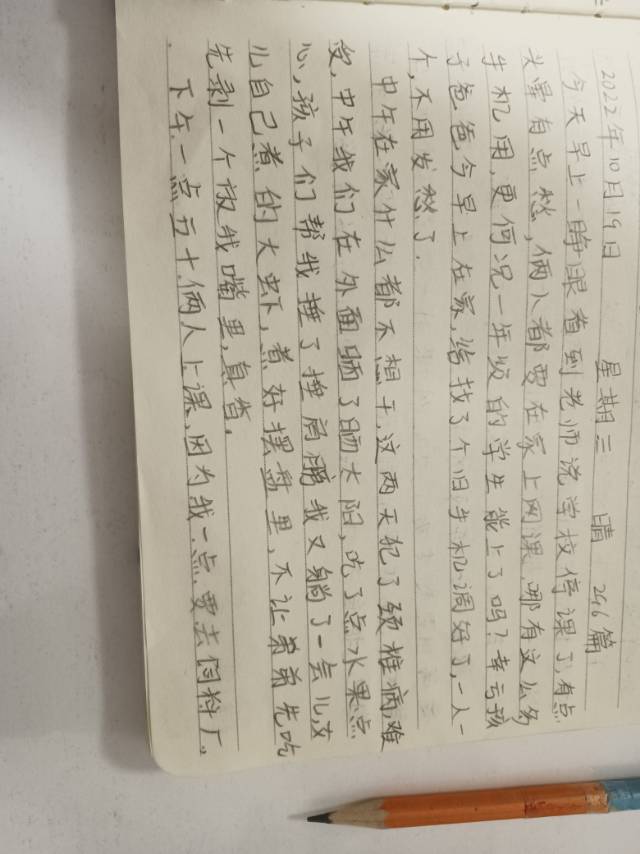 2022年10月19日 星期三 晴 246篇
今天早上一睁眼看到老师说学校停课了,有点
头晕有点愁,俩人都要在家上网课,哪有这么多
手机用,更何况一年级的学生能上了吗?幸亏孩
子爸爸今早上在家,给找了个旧手机调好了,一人一
个,不用发愁了.
中午在家什么都不想干,这两天犯了颈椎病,难
受,中午我们在外面晒了晒太阳,吃了点水果点
心,孩子们帮我捶了捶肩膀我又躺了一会儿,女
儿自己煮的大虾,煮好摆盘里,不让弟弟先吃
先剥一个放我嘴里,真香。
下午一点五十俩人上课,因为我一点要去饲料厂。